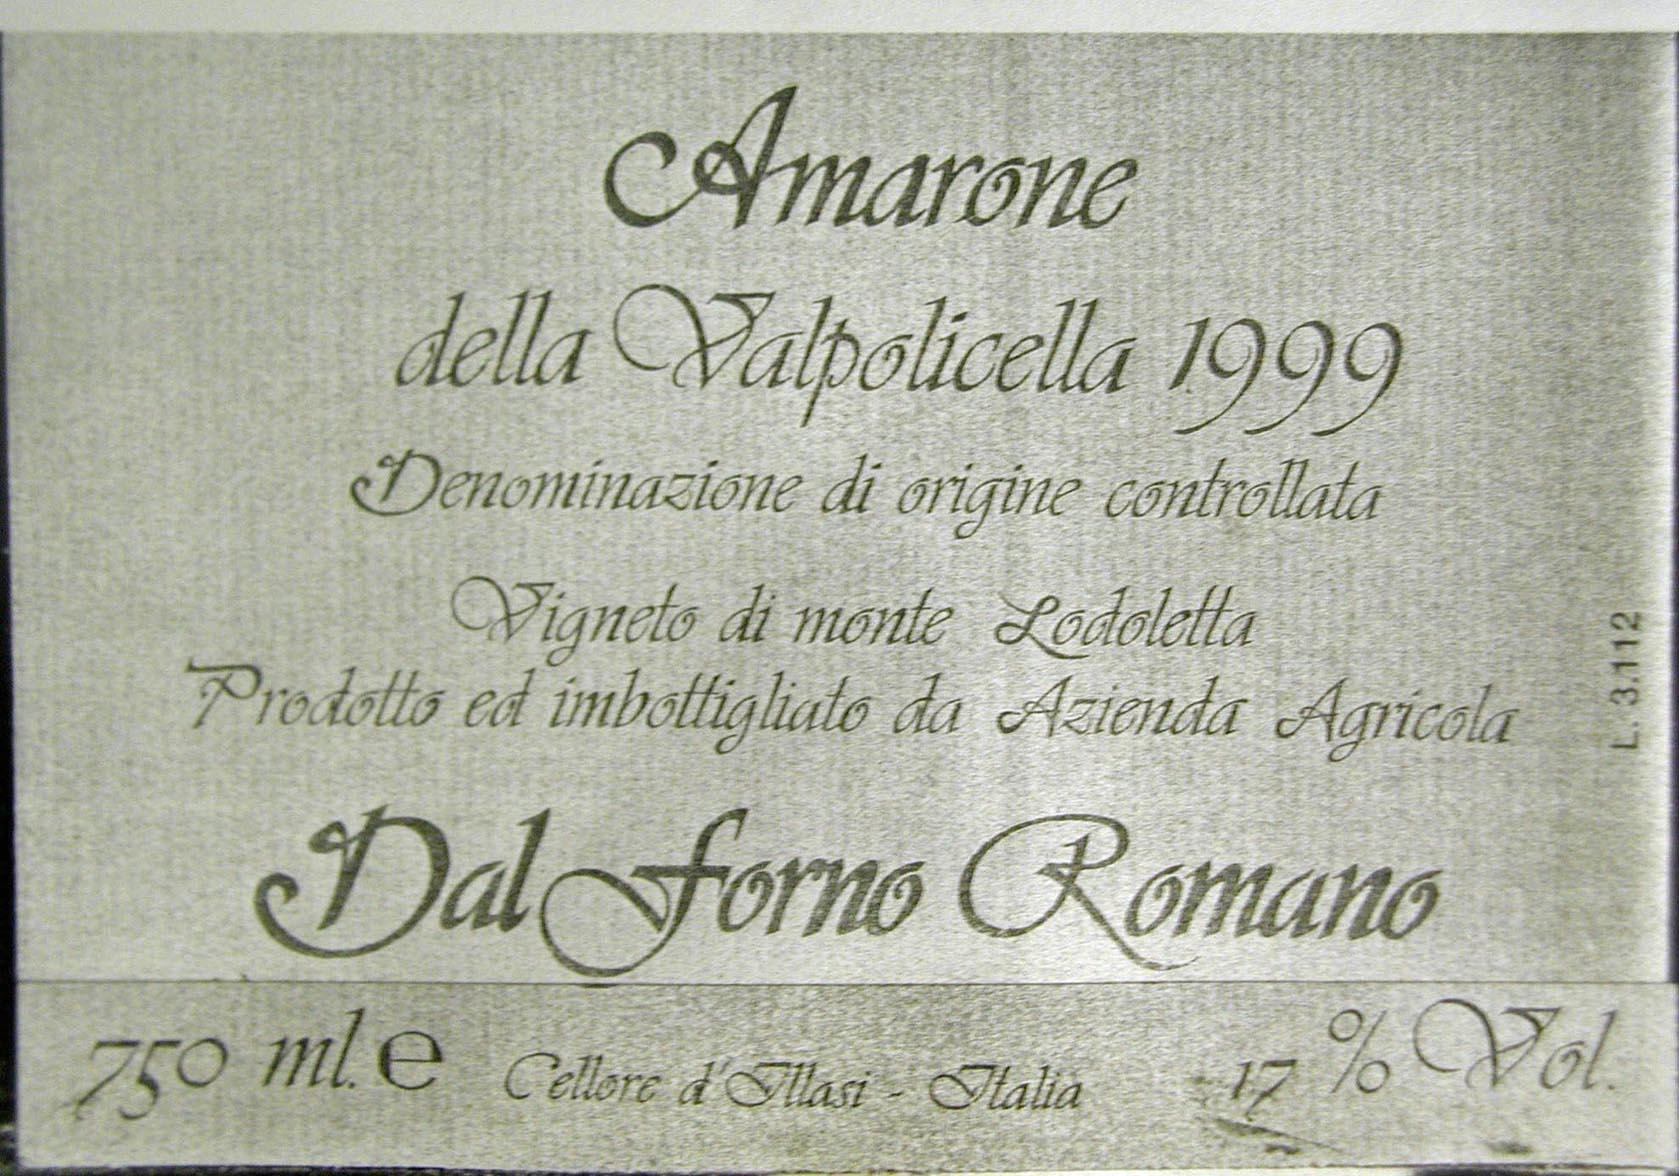 Amarone
della Valpolicella 1999
Denominazione di origine controllata
Vigneto di monte Lodoletta
Prodotto ed imbottigliato da Azienda Agricola
L. 3.112
Dal forno Romano
750 ml. e Cellore d'Illasi - Italia 17 % Vol.